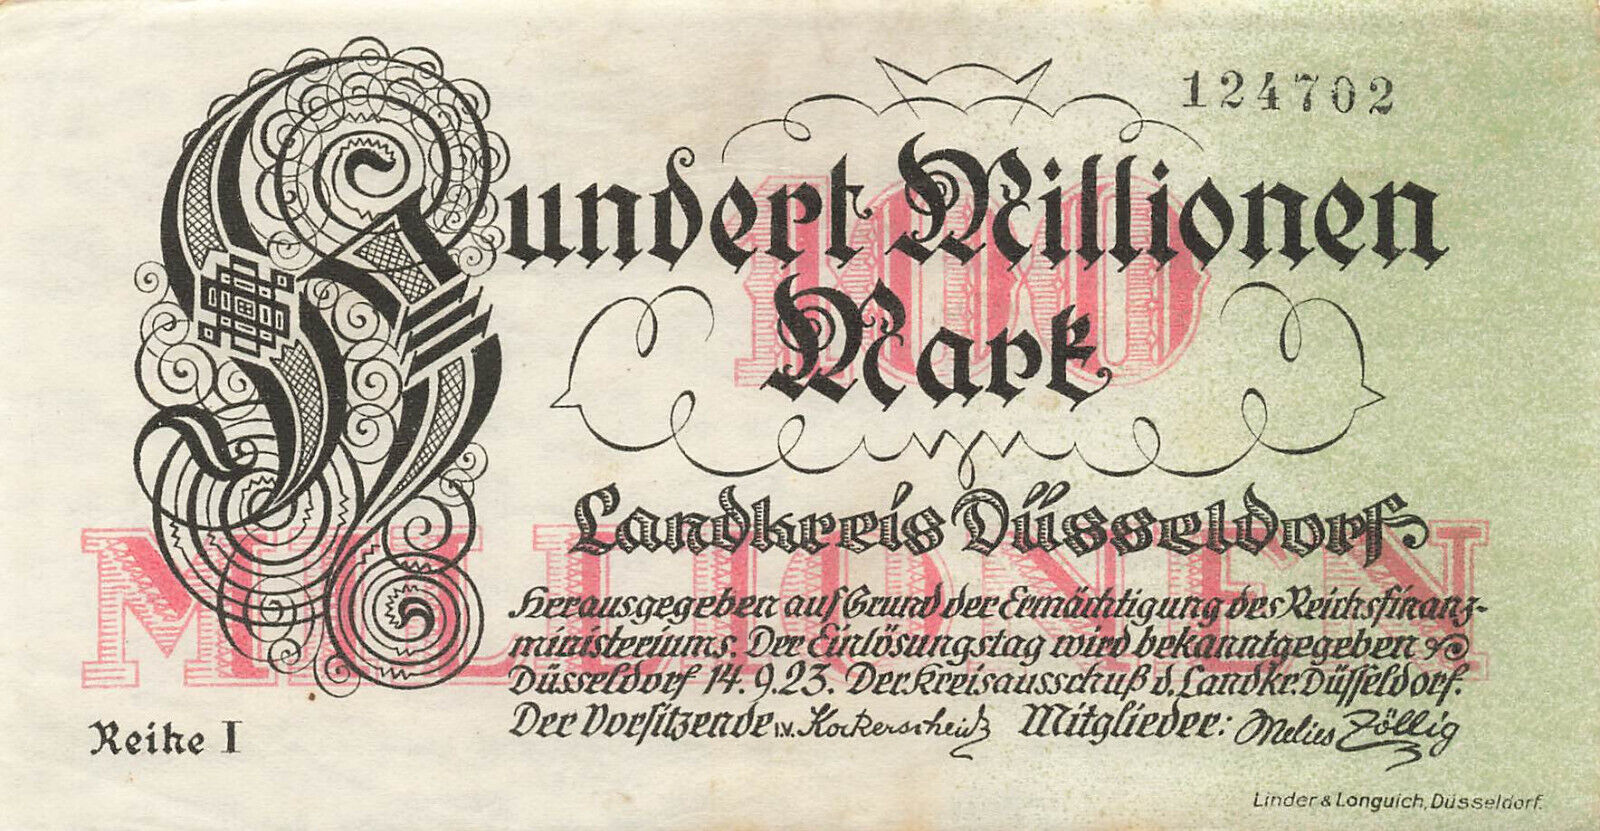 124702
Hundert Millionen
Mark
100
MILLIONEN
Landkreis Düsseldorf
Herausgegeben auf Grund der Ermächtigung des Reichsfinanz-
ministeriums. Der Einlösungstag wird bekanntgegeben
Düsseldorf 14.9.23. Der Kreisausschuß d. Landkr. Düsseldorf.
Der Vorsitzende i.V. Mitglieder: Melies Zöllig
Reihe I
Linder & Longuich, Düsseldorf.